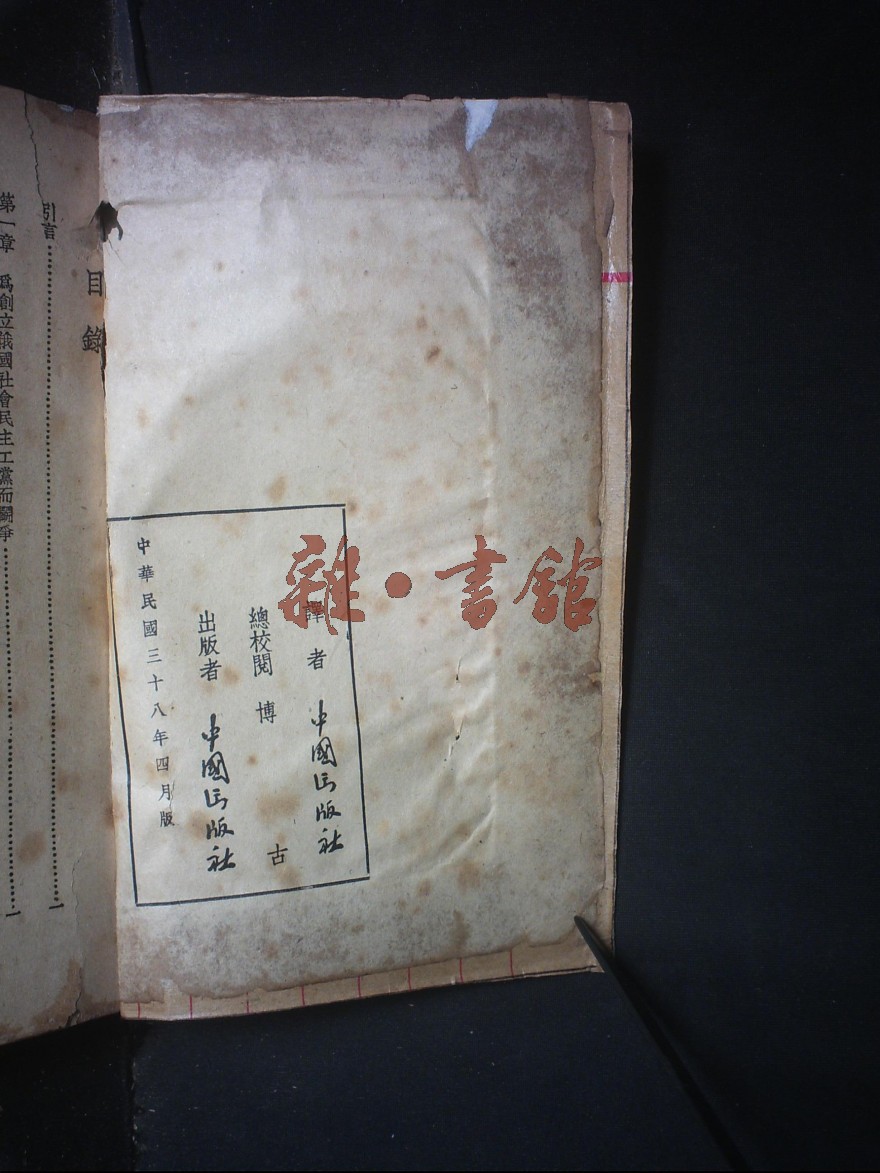 譯者 中國出版社
總校閱 博古
出版者 中國出版社
中華民國三十八年四月版
目錄
引言 一
第一章 爲創立俄國社會民主工黨而鬭爭 一
雜·書館